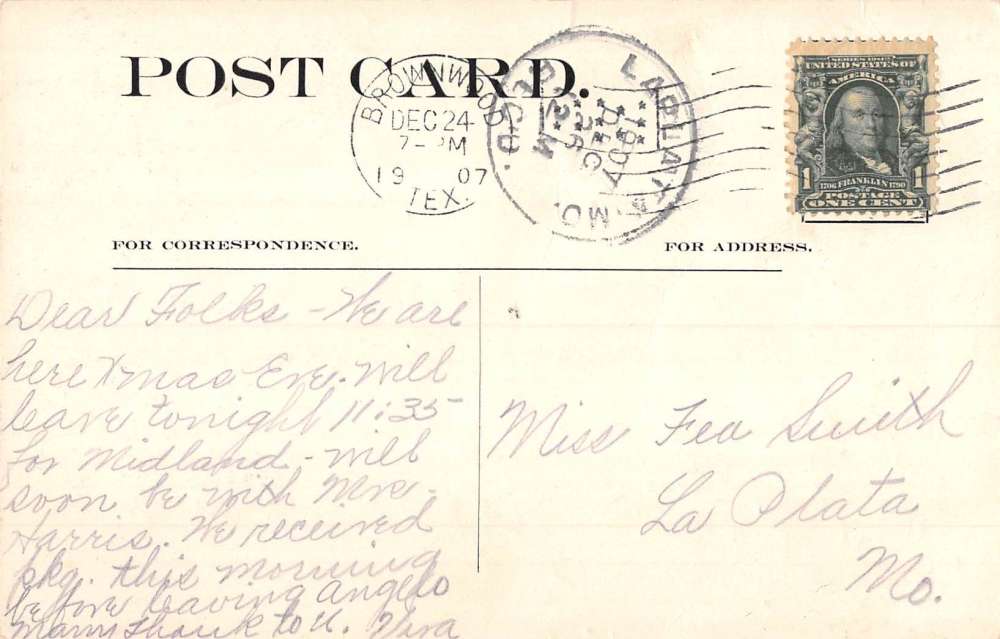 POST CARD.
BROWNWOOD
DEC 24
7-PM
19 07
TEX.
LAPLATA, MO.
DEC
26
1907
REC'D.
SERIES 1902
UNITED STATES OF
AMERICA
1 1
1706 FRANKLIN 1790
POSTAGE
ONE CENT
FOR CORRESPONDENCE.
FOR ADDRESS.
Dear Folks - We are
here Xmas Eve. will
leave tonight 11:35
for Midland - will
soon be with Mrs.
Harris. We received
pkg. this morning
before leaving Angelo
Many thank to U. Viva
Miss Fea Smith
La Plata
Mo.